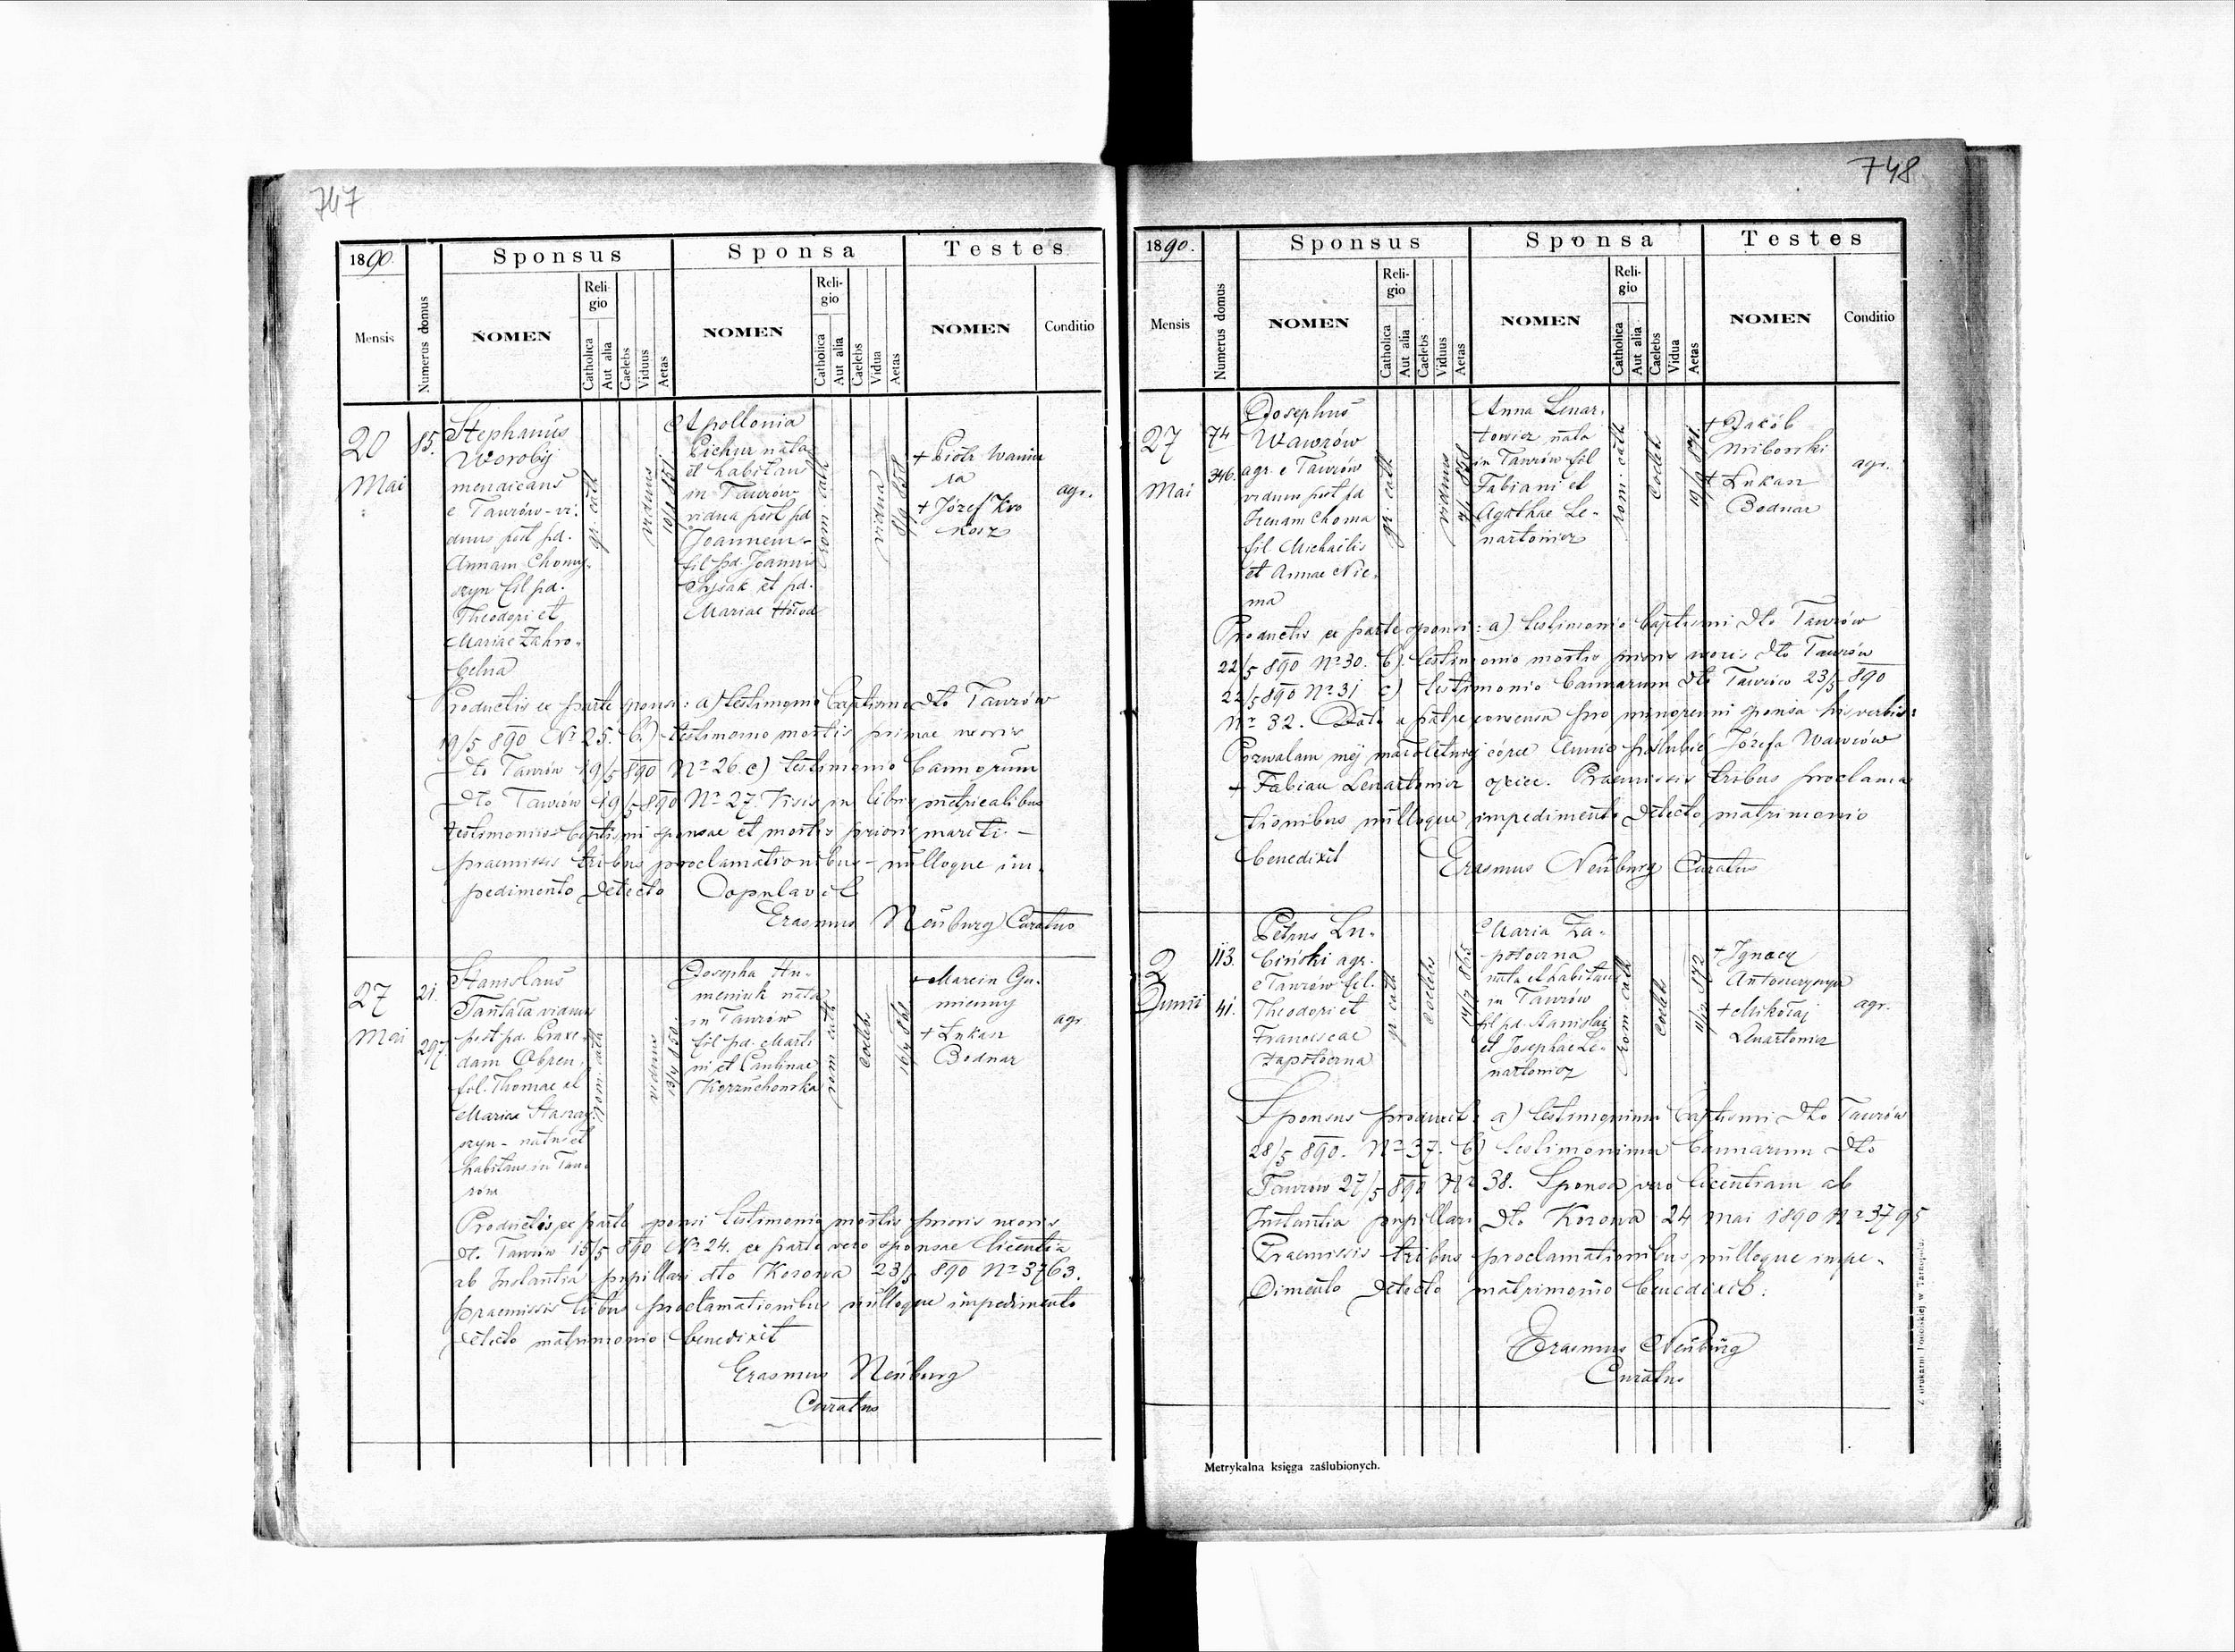 747
1890.
Mensis
Numerus domus
Sponsus
NOMEN
Religio
Catholica
Aut alia
Caelebs
Viduus
Aetas
Sponsa
NOMEN
Religio
Catholica
Aut alia
Caelebs
Vidua
Aetas
Testes
NOMEN
Conditio
20
Mai
85.
Stephanus
Worobij
mendicans
e Taurów - vi-
duus post pd.
Annam Chomy-
szyn fil pd.
Theodori et
Mariae Zahro-
belna
gr. cath
viduus
Apollonia
Cichur nata
et habitans
in Taurów
vidua post pd
Joannem -
fil pd. Joannis
et pd.
Mariae Hołod
rom. cath
vidua
8/9 858
+ Piotr
+ Józef Kro
kosz
agr.
Productis ex parte sponsi: a) testimonio baptismi dto Taurów
19/5 890 No 25. b.) testimonio mortis primae uxoris
dto Taurów 19/5 890 No 26. c) testimonio bannorum
dto Taurów 19/5 890 No 27. Visis in libris metricalibus
testimoniis baptismi sponsae et mortis prioris mariti -
praemissis tribus proclamationibus - nulloque im-
pedimento detecto Copulavit
Erasmus Neüburg Curatus
27
Mai
21.
297.
Stanislaus
Tantała viduus
post pd. Praxe-
dam
fil. Thomae et
Mariae
szyn - natus et
habitans in Tau-
rów
rom. cath
viduus
13/4 850.
Josepha Hu-
meniuk nata
in Taurów
fil pd. Marti
ni et Paulinae
Korzuchowska
rom cath
coelebs
+ Marcin Gu-
mienny
+ Łukasz
Bodnar
agr
Productis ex parte sponsi testimonio mortis prioris uxoris
dt. Taurów 15/5 890 No 24. ex parte vero sponsae licentia
ab Instantia pupillari dto Kozowa 23/5 890 No 3763.
praemissis tribus proclamationibus nulloque impedimento
detecto matrimonio benedixit
Erasmus Neüburg
Curatus
748
1890.
Mensis
Numerus domus
Sponsus
NOMEN
Religio
Catholica
Aut alia
Caelebs
Viduus
Aetas
Sponsa
NOMEN
Religio
Catholica
Aut alia
Caelebs
Vidua
Aetas
Testes
NOMEN
Conditio
27
Mai
74
346.
Josephus
Wawrów
agr. e Taurów
viduus post pd
Irenam Choma
fil Michaelis
et Annae Nie-
ma
gr. cath
viduus
Anna Lenar-
towicz nata
in Taurów fil
Fabiani et
Agathae Le-
nartowicz
rom. cath
coeleb
19/9 871.
+ Jakób
+ Łukasz
Bodnar
agr.
Productis ex parte sponsi: a) testimonio baptismi dto Taurów
22/5 890 No 30. b) testimonio mortis prioris uxoris dto Taurów
22/5 890 No 31 c) testimonio bannorum dto Taurów 23/5 890
No 32. Dato a patre consensu pro minorenni sponsa his verbis:
Pozwalam mej małoletniej córce Annie poślubić Józefa Wawrów
+ Fabian Lenartowicz ojciec. Praemissis tribus proclama
tionibus nulloque impedimento detecto matrimonio
benedixit
Erasmus Neüburg Curatus
2
Junii
113.
41.
Petrus Lu-
biński agr.
e Taurów fil.
Theodori et
Francescae
Zapotoczna
gr cath
coelebs
14/7 865
Maria Za-
potoczna
nata et habitans
in Taurów
fil pd. Stanislai
et Josephae Le-
nartowicz
rom. cath
coeleb
+ Ignacy
Antonczyszyn
+ Mikołaj
Lenartowicz
agr.
Sponsus produxit: a) testimonium baptismi dto Taurów
28/5 890. No 37. b) testimonium bannorum dto
Taurów 27/5 890 No 38. Sponsa vero licentiam ab
Instantia pupillari dto Kozowa 24 Mai 1890 No 3795
Praemissis tribus proclamationibus nulloque impe-
dimento detecto matrimonio benedixit.
Erasmus Neüburg
Curatus
Metrykalna księga zaślubionych.
Z drukarni Podolskiej w Tarnopolu.